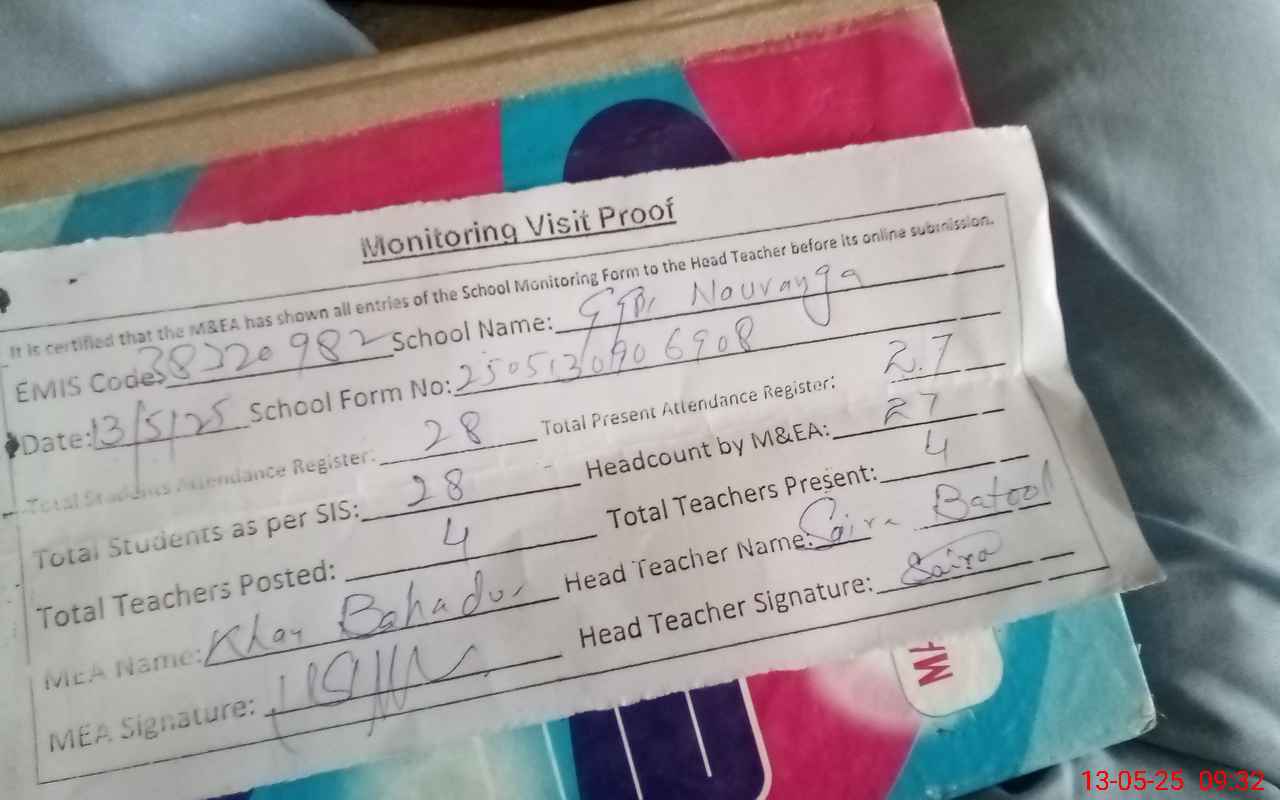 Monitoring Visit Proof
It is certified that the M&EA has shown all entries of the School Monitoring Form to the Head Teacher before its online submission.
EMIS Code: 38320982 School Name: Nouranga
Date: 13/5/25 School Form No: 2505130906908
Total Students Attendance Register: 28 Total Present Attendance Register: 27
Total Students as per SIS: 28 Headcount by M&EA: 27
Total Teachers Posted: 4 Total Teachers Present: 4
MEA Name: Khan Bahadur Head Teacher Name: Saira Batool
MEA Signature: Head Teacher Signature: Saira
13-05-25 09:32